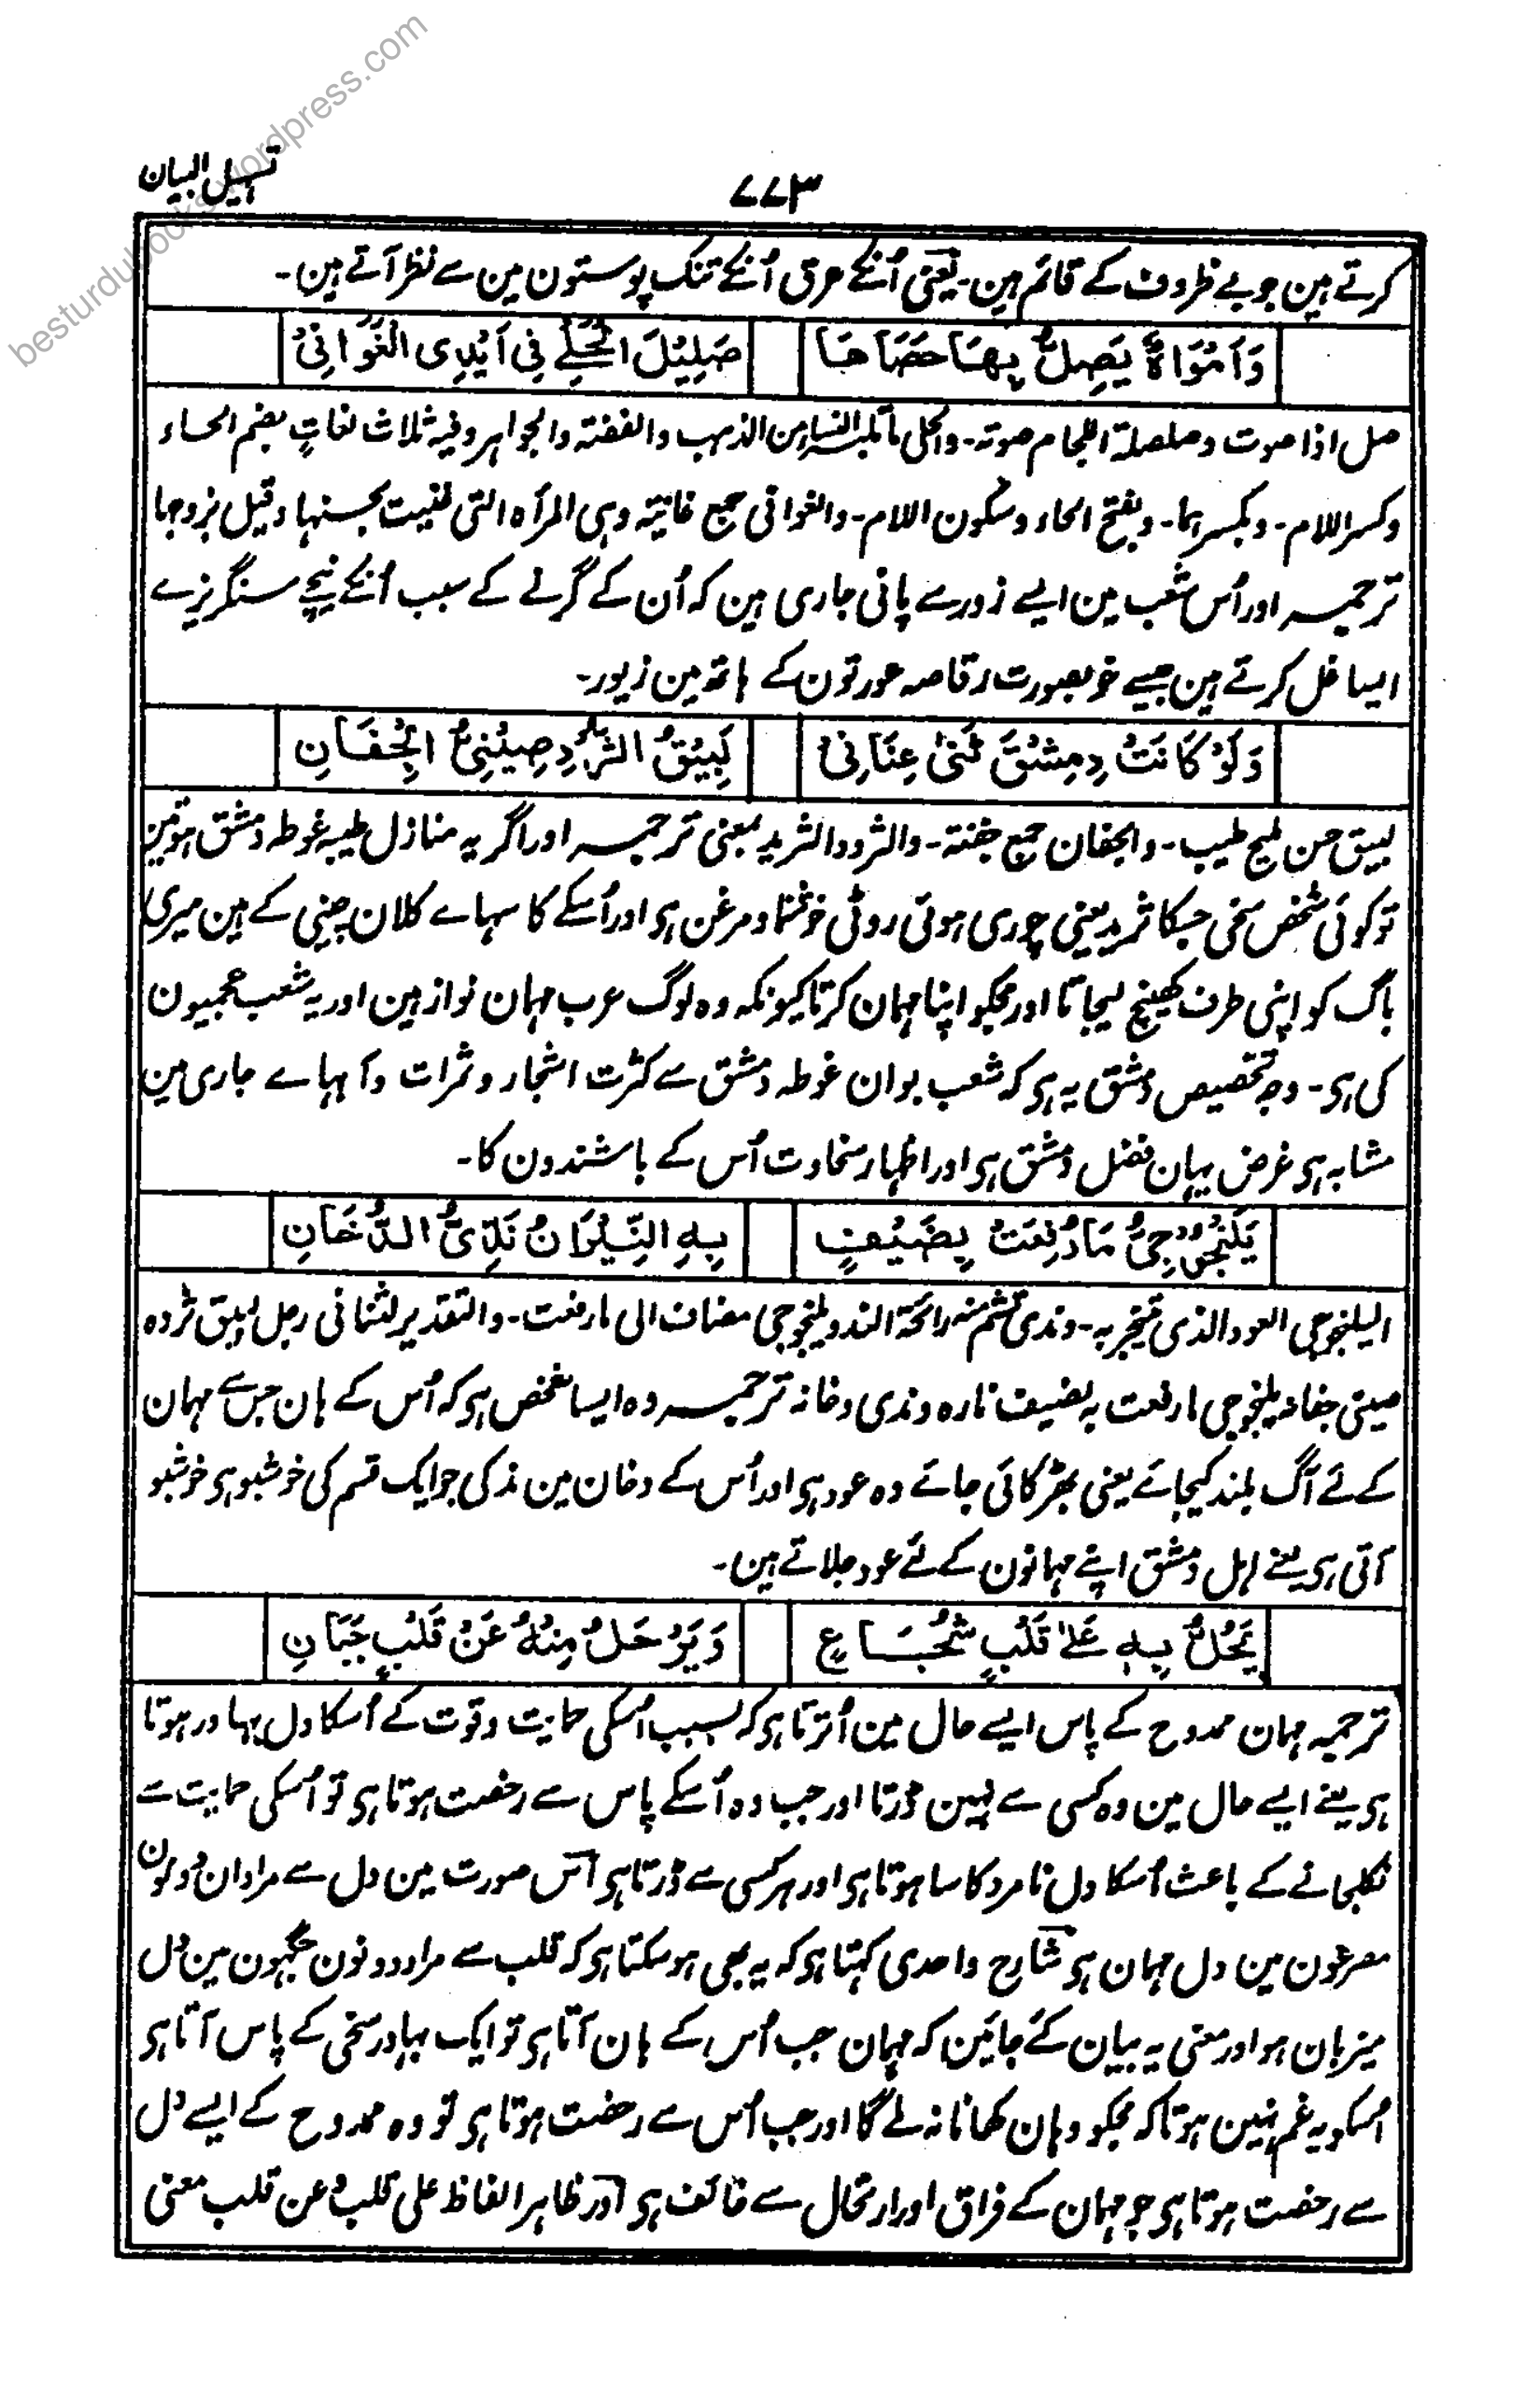 besturdubooks.wordpress.com
تسہیل البیان
۷۷۳
کرتے ہین جو بے ظروف کے قائم ہین۔ یعنی اُنکے عرق اُنکے تنک پوستون مین سے نظر آتے ہین۔
وَاَمْوَاهٌ يَصِلُّ بِهَا حَصَاهَا صَلِيْلَ الْحُلِيِّ فِي اَيْدِي الْغَوَانِيْ
صل اذا صوت وصلصلة اللجام صوته۔ والحلی ماتلبسه النساء من الذہب والفضته والجواہر وفیہ ثلاث لغاتٍ بضم الحاء
وکسر اللام۔ وبکسرہما۔ وبفتح الحاء وسکون اللام۔ والغوانی جمع غانیتہ وہی المرآہ التی غنیت بحسنہا وقیل بزوجہا
ترجمہ اور اُس شعب مین ایسے زورے پانی جاری ہین کہ اُن کے گرنے کے سبب اُنکے نیچے سنگریزے
ایسا غل کرتے ہین جیسے خوبصورت رقاصہ عورتون کے ہاتہ مین زیور۔
وَلَوْ كَانَتْ دِمِشْقَ ثَنٰى عِنَانِيْ لَبِيْقُ الثُّرْدِ صِيْنِيُّ الْجِفَانِ
لبیق حسن ملیح طیب۔ والجفان جمع جفنة۔ والثرد والثرید بمعنی ترجمہ اور اگر یہ منازل طیبہ غوطہ دمشق ہوتین
تو کوئی شخص سخی جسکا ثرید یعنی چوری ہوئی روٹی خوشنما و مرغن ہی اور اُسکے کاسہاے کلان چینی کے ہین میری
باگ کو اپنی طرف کھینچ لیجاتا اور مجکو اپنا مہمان کرتا کیونکہ وہ لوگ عرب مہمان نواز ہین اور یہ شعب عجمیون
کی ہی۔ وجہ تخصیص دمشق یہ ہی کہ شعب بوان غوطہ دمشق سے کثرت اشجار و ثمرات و آبہاے جاری مین
مشابہ ہی غرض یہان فضل دمشق ہی اور اظہار سخاوت اُس کے باشندون کا۔
يَلَنْجُوْجِيُّ مَا رُفِعَتْ بِضَيْفٍ بِهِ النِّيْرَانُ نَدِّيُّ الدُّخَانِ
الیلنجوجی العود الذی یتبخربہ۔ وندی یشم منہ رائحة الند ویلنجوجی مضاف الی ما رفعت۔ والتقدیر لثنانی رجل لبیق ثردہ
صینی جفانہ یلنجوجی ما رفعت بہ بضیف نارہ وندی دخانہ ترجمہ وہ ایسا شخص ہی کہ اُس کے ہان جس سے مہمان
کے لئے آگ بلند کیجائے یعنی بھڑکائی جائے وہ عود ہی اور اُس کے دخان مین ند کی جو ایک قسم کی خوشبو ہی خوشبو
آتی ہی یعنے اہل دمشق اپنے مہمانون کے لئے عود جلاتے ہین۔
يَحُلُّ بِهٖ عَلٰى قَلْبٍ شُجَاعٍ وَيَرْحَلُ مِنْهُ عَنْ قَلْبٍ جَبَانِ
ترجمہ مہمان ممدوح کے پاس ایسے حال مین اُترتا ہی کہ بسبب اُسکی حمایت وقوت کے اُسکا دل بہادر ہوتا
ہی یعنے ایسے حال مین وہ کسی سے نہین ڈرتا اور جب وہ اُسکے پاس سے رخصت ہوتا ہی تو اُسکی حمایت سے
نکلجانے کے باعث اُسکا دل نامرد کا سا ہوتا ہی اور ہر کسی سے ڈرتا ہی اس صورت مین دل سے مراد ان دونون
مصرعون مین دل مہمان ہی شارح واحدی کہتا ہی کہ یہ بھی ہوسکتا ہی کہ قلب سے مراد دونون جگہون مین دل
میزبان ہو اور معنی یہ بیان کئے جائین کہ مہمان جب اُس کے ہان آتا ہی تو ایک بہادر سخی کے پاس آتا ہی
اُسکو یہ غم نہین ہوتا کہ مجکو وہان کھانا نہ ملے گا اور جب اُس سے رخصت ہوتا ہی تو وہ ممدوح کے ایسے دل
سے رخصت ہوتا ہی جو مہمان کے فراق اور ارتحال سے خائف ہی اور ظاہر الفاظ علی قلب و عن قلب معنی